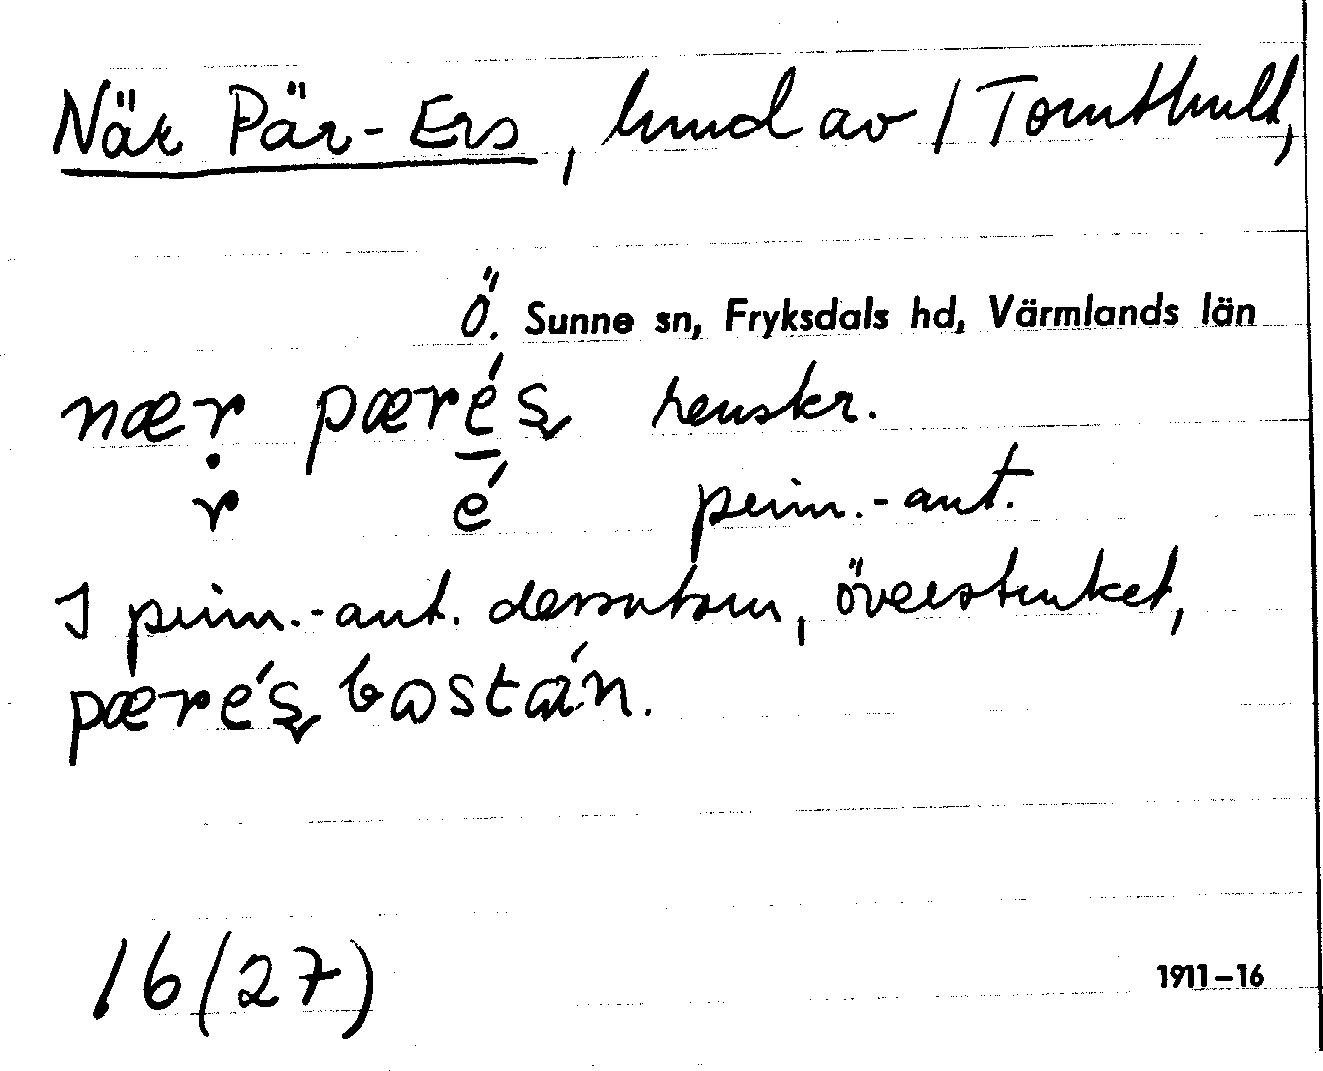 När Pär-Ers, hmd av / Tomthult,
Ö. Sunne sn, Fryksdals hd, Värmlands län
næṛ pærés̬ renskr.
r é prim.-ant.
I prim.-ant. dessutom, överstruket,
pærés̬ bastán.
16(27)
1911–16